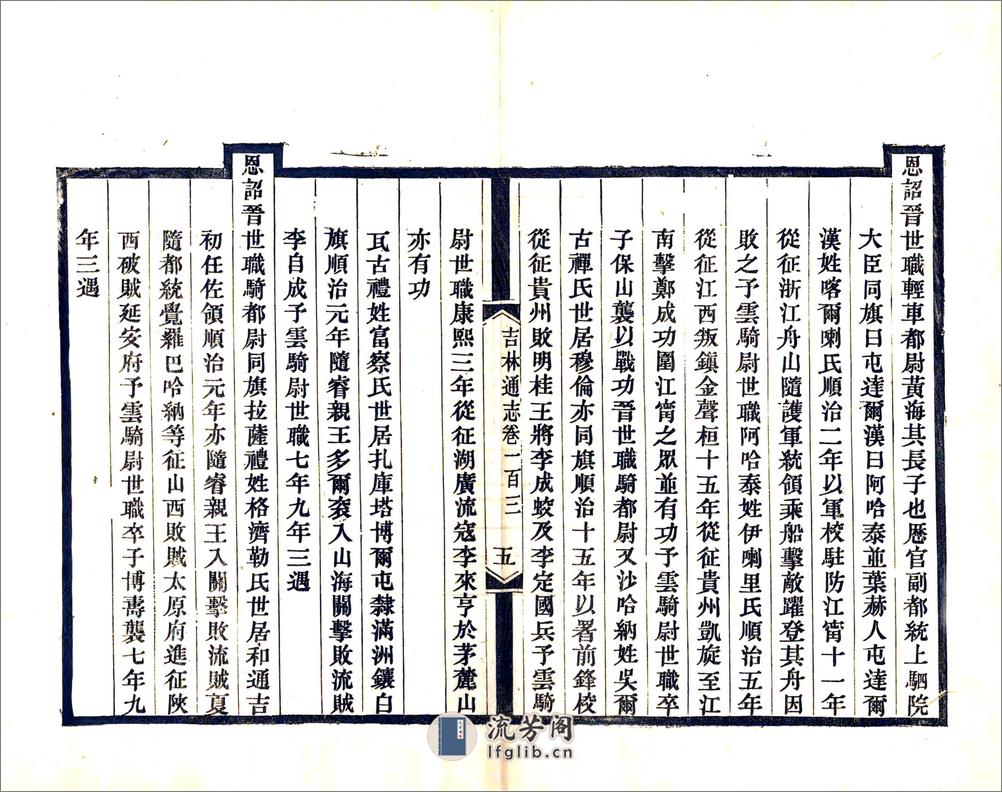 恩詔晉世職輕車都尉黃海其長子也歷官副都統上駟院
大臣同旗曰屯達爾漢曰阿哈泰並葉赫人屯達爾
漢姓喀爾喇氏順治二年以軍校駐防江甯十一年
從征浙江舟山隨護軍統領乘船擊敵躍登其舟因
敗之予雲騎尉世職阿哈泰姓伊喇里氏順治五年
從征江西叛鎮金聲桓十五年從征貴州凱旋至江
南擊鄭成功圍江甯之眾並有功予雲騎尉世職卒
子保山襲以戰功晉世職騎都尉又沙哈納姓吳爾
古禪氏世居穆倫亦同旗順治十五年以署前鋒校
從征貴州敗明桂王將李成蛟及李定國兵予雲騎
吉林通志卷一百三
五
尉世職康熙三年從征湖廣流寇李來亨於茅麓山
亦有功
瓦古禮姓富察氏世居扎庫塔博爾屯隸滿洲鑲白
旗順治元年隨睿親王多爾袞入山海關擊敗流賊
李自成予雲騎尉世職七年九年三遇
恩詔晉世職騎都尉同旗拉薩禮姓格濟勒氏世居和通吉
初任佐領順治元年亦隨睿親王入關擊敗流賊夏
隨都統覺羅巴哈納等征山西敗賊太原府進征陝
西破賊延安府予雲騎尉世職卒子博壽襲七年九
年三遇
流芳阁
lfglib.cn